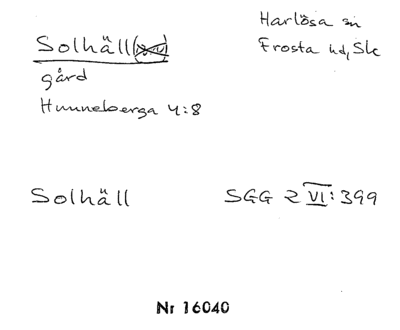 Solhäll
Harlösa sn
Frosta hd, Sk
gård
Hunneberga 4:8
Solhäll SGG 2 VI: 399
Nr 16040